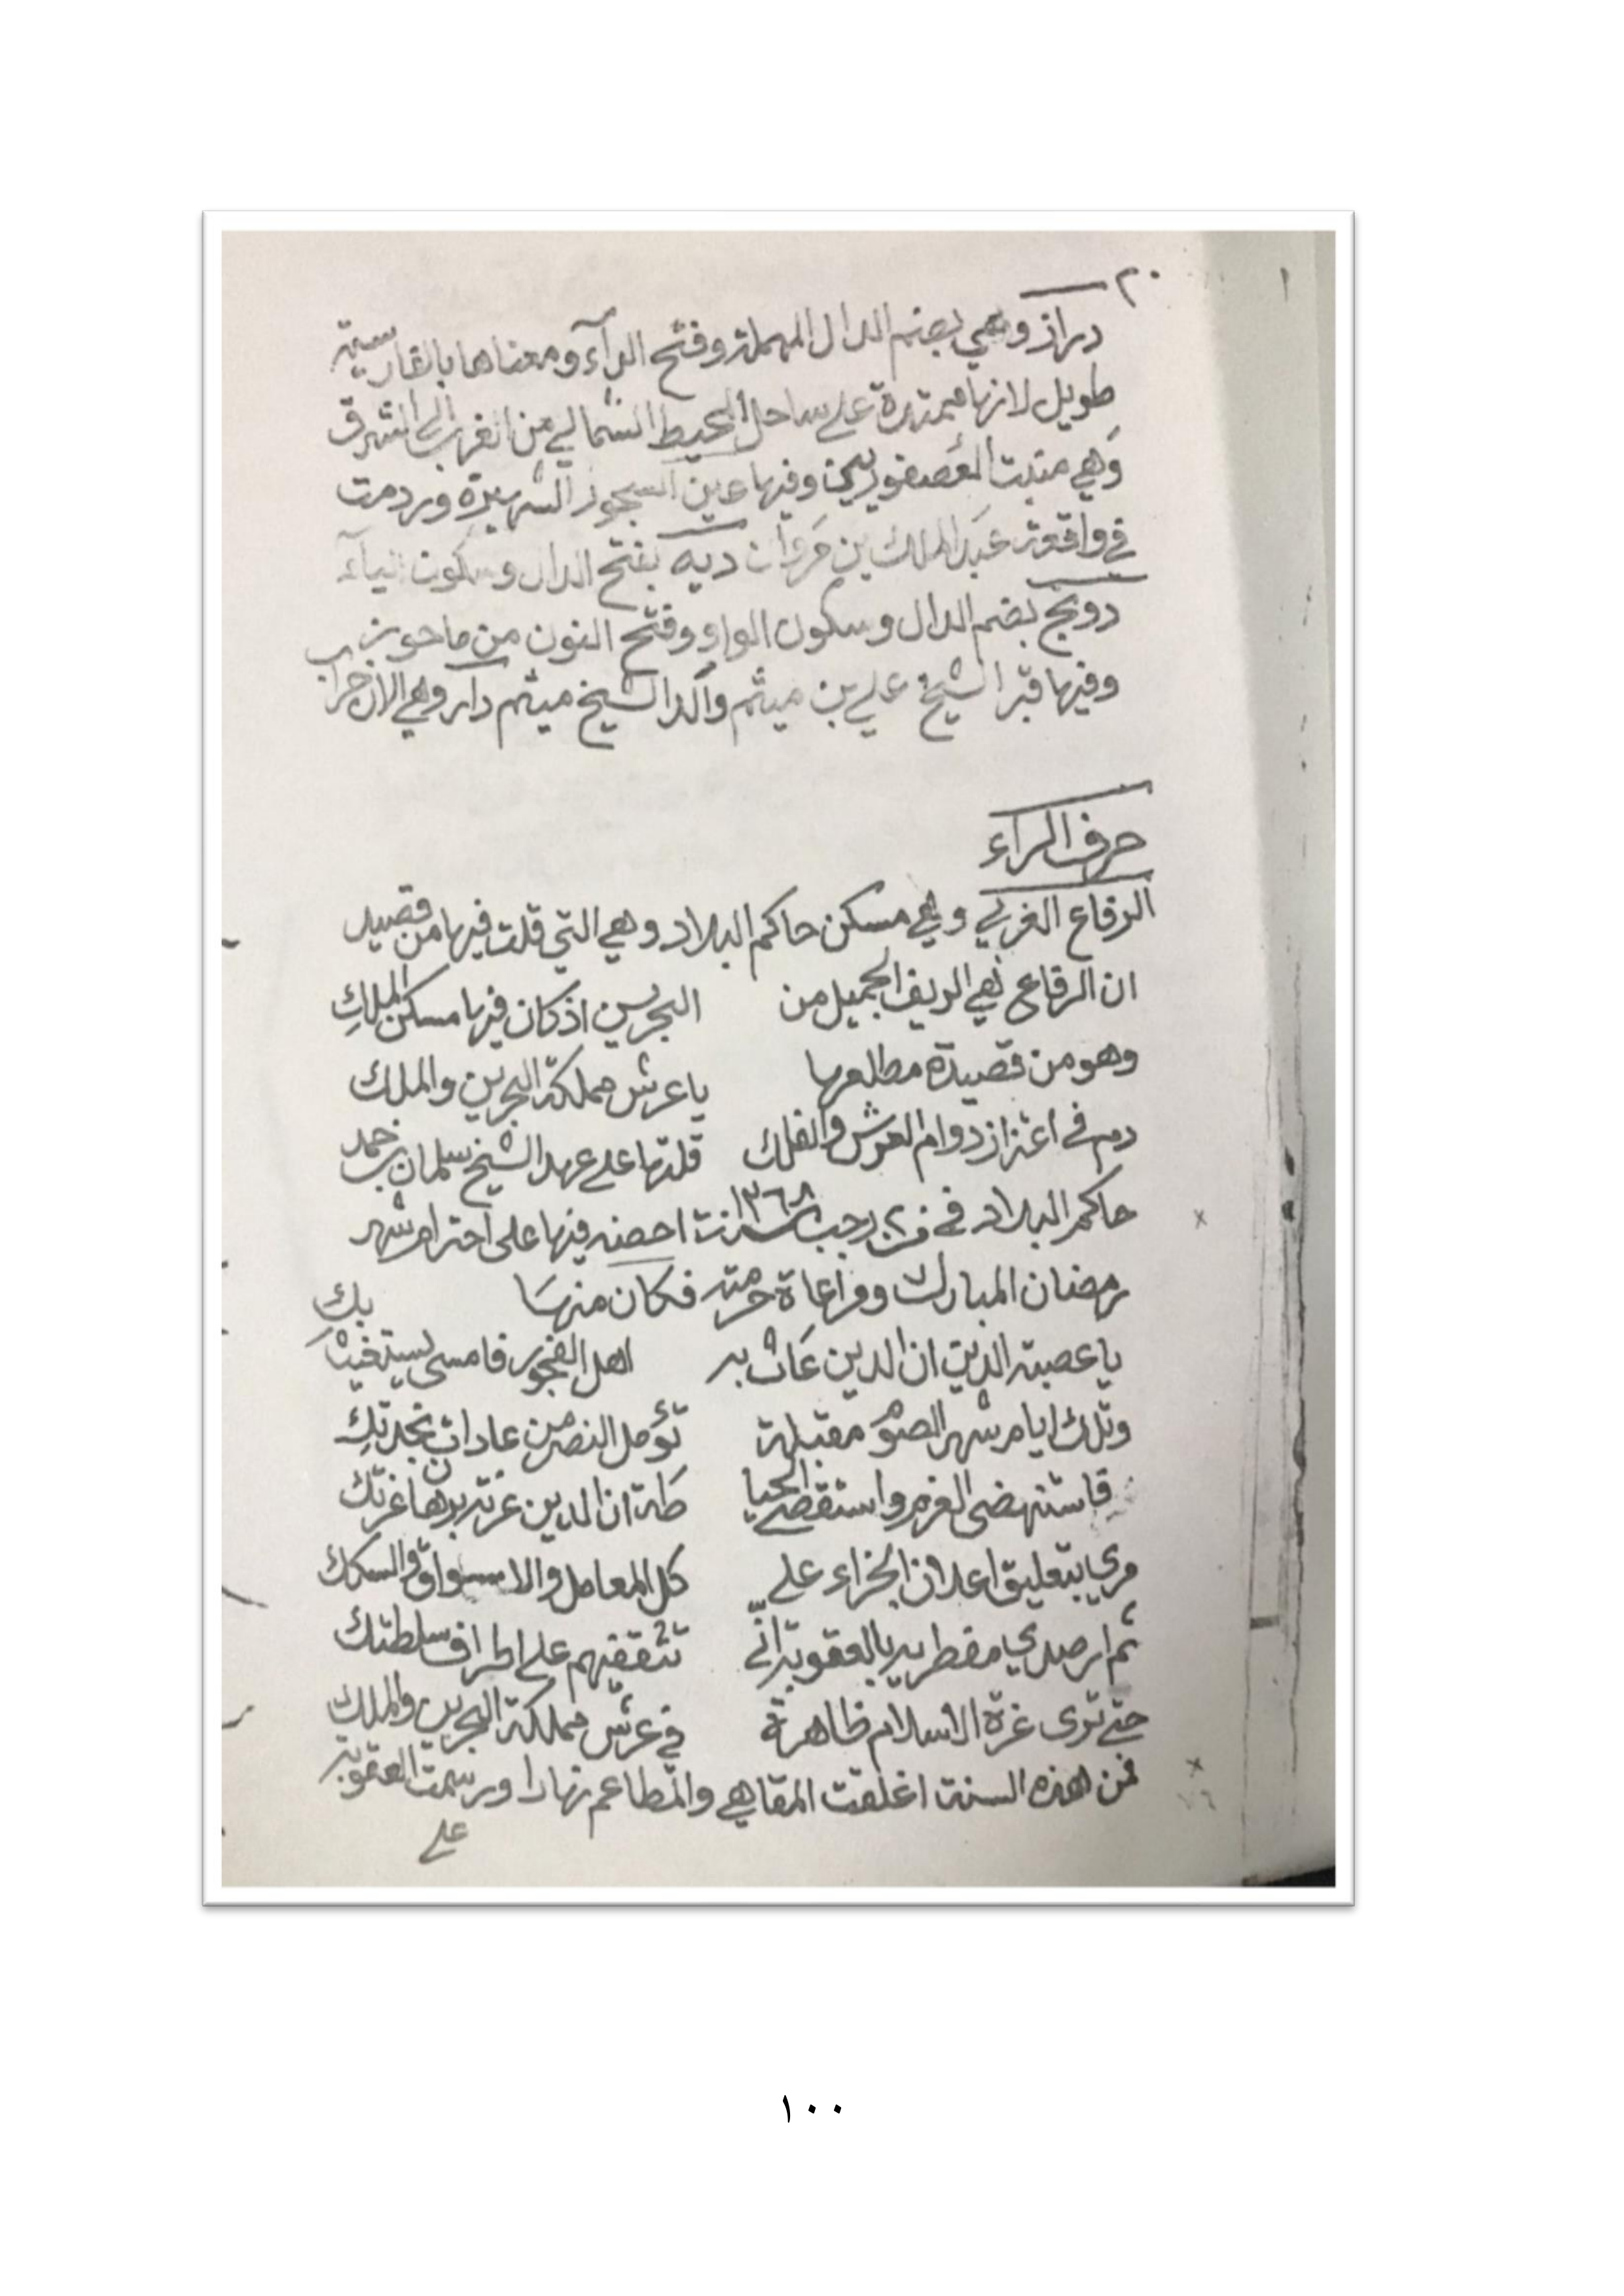 ٢٠
دراز وهي بضم الدال المهملة وفتح الرآء ومعناها بالفارسية
طويل لانها ممتدة على ساحل المحيط الشمالي من الغرب الى الشرق
وهي منبت العصفوريين وفيها عين السجور الشهيرة وردمت
في واقعة عبد الملك بن مروان ديه بفتح الدال وسكون اليآء
دونج بضم الدال وسكون الواو وفتح النون من ماحوز
وفيها قبر الشيخ علي بن ميثم والد الشيخ ميثم دار وهي الان خراب
حرف الراء
الرفاع الغربي وهي مسكن حاكم البلاد وهي التي قلت فيها من قصيد
ان الرفاع هي الريف الجميل من البحرين اذ كان فيها مسكن الملك
وهو من قصيدة مطلعها يا عرش مملكة البحرين والملك
دم في اعتزاز دوام العرش والفلك قلتها على عهد الشيخ سلمان بن حمد
حاكم البلاد في رجب سنة ١٣٦٨ احضه فيها على احترام شهر
رمضان المبارك ومراعاة حرمته فكان منها
يا عصبة الدين ان الدين عاث به اهل الفجور فامسى يستغيث بك
وتلك ايام شهر الصوم مقبلة تؤمل النصر من عادات نجدتك
فاستنهضي العزم واستقصي الحياطة ان الدين عزته برهان عزتك
مري بتعليق اعلان الجزاء على كل المعامل والاسواق والسكك
ثم ارصدي مفطريه بالعقوبة اني تثقفيهم على اطراف سلطتك
حتى ترى غرة الاسلام ظاهرة في عرش مملكة البحرين والملك
فمن هذه السنة اغلقت المقاهي والمطاعم نهارا ورسمت العقوبة
على
١٠٠